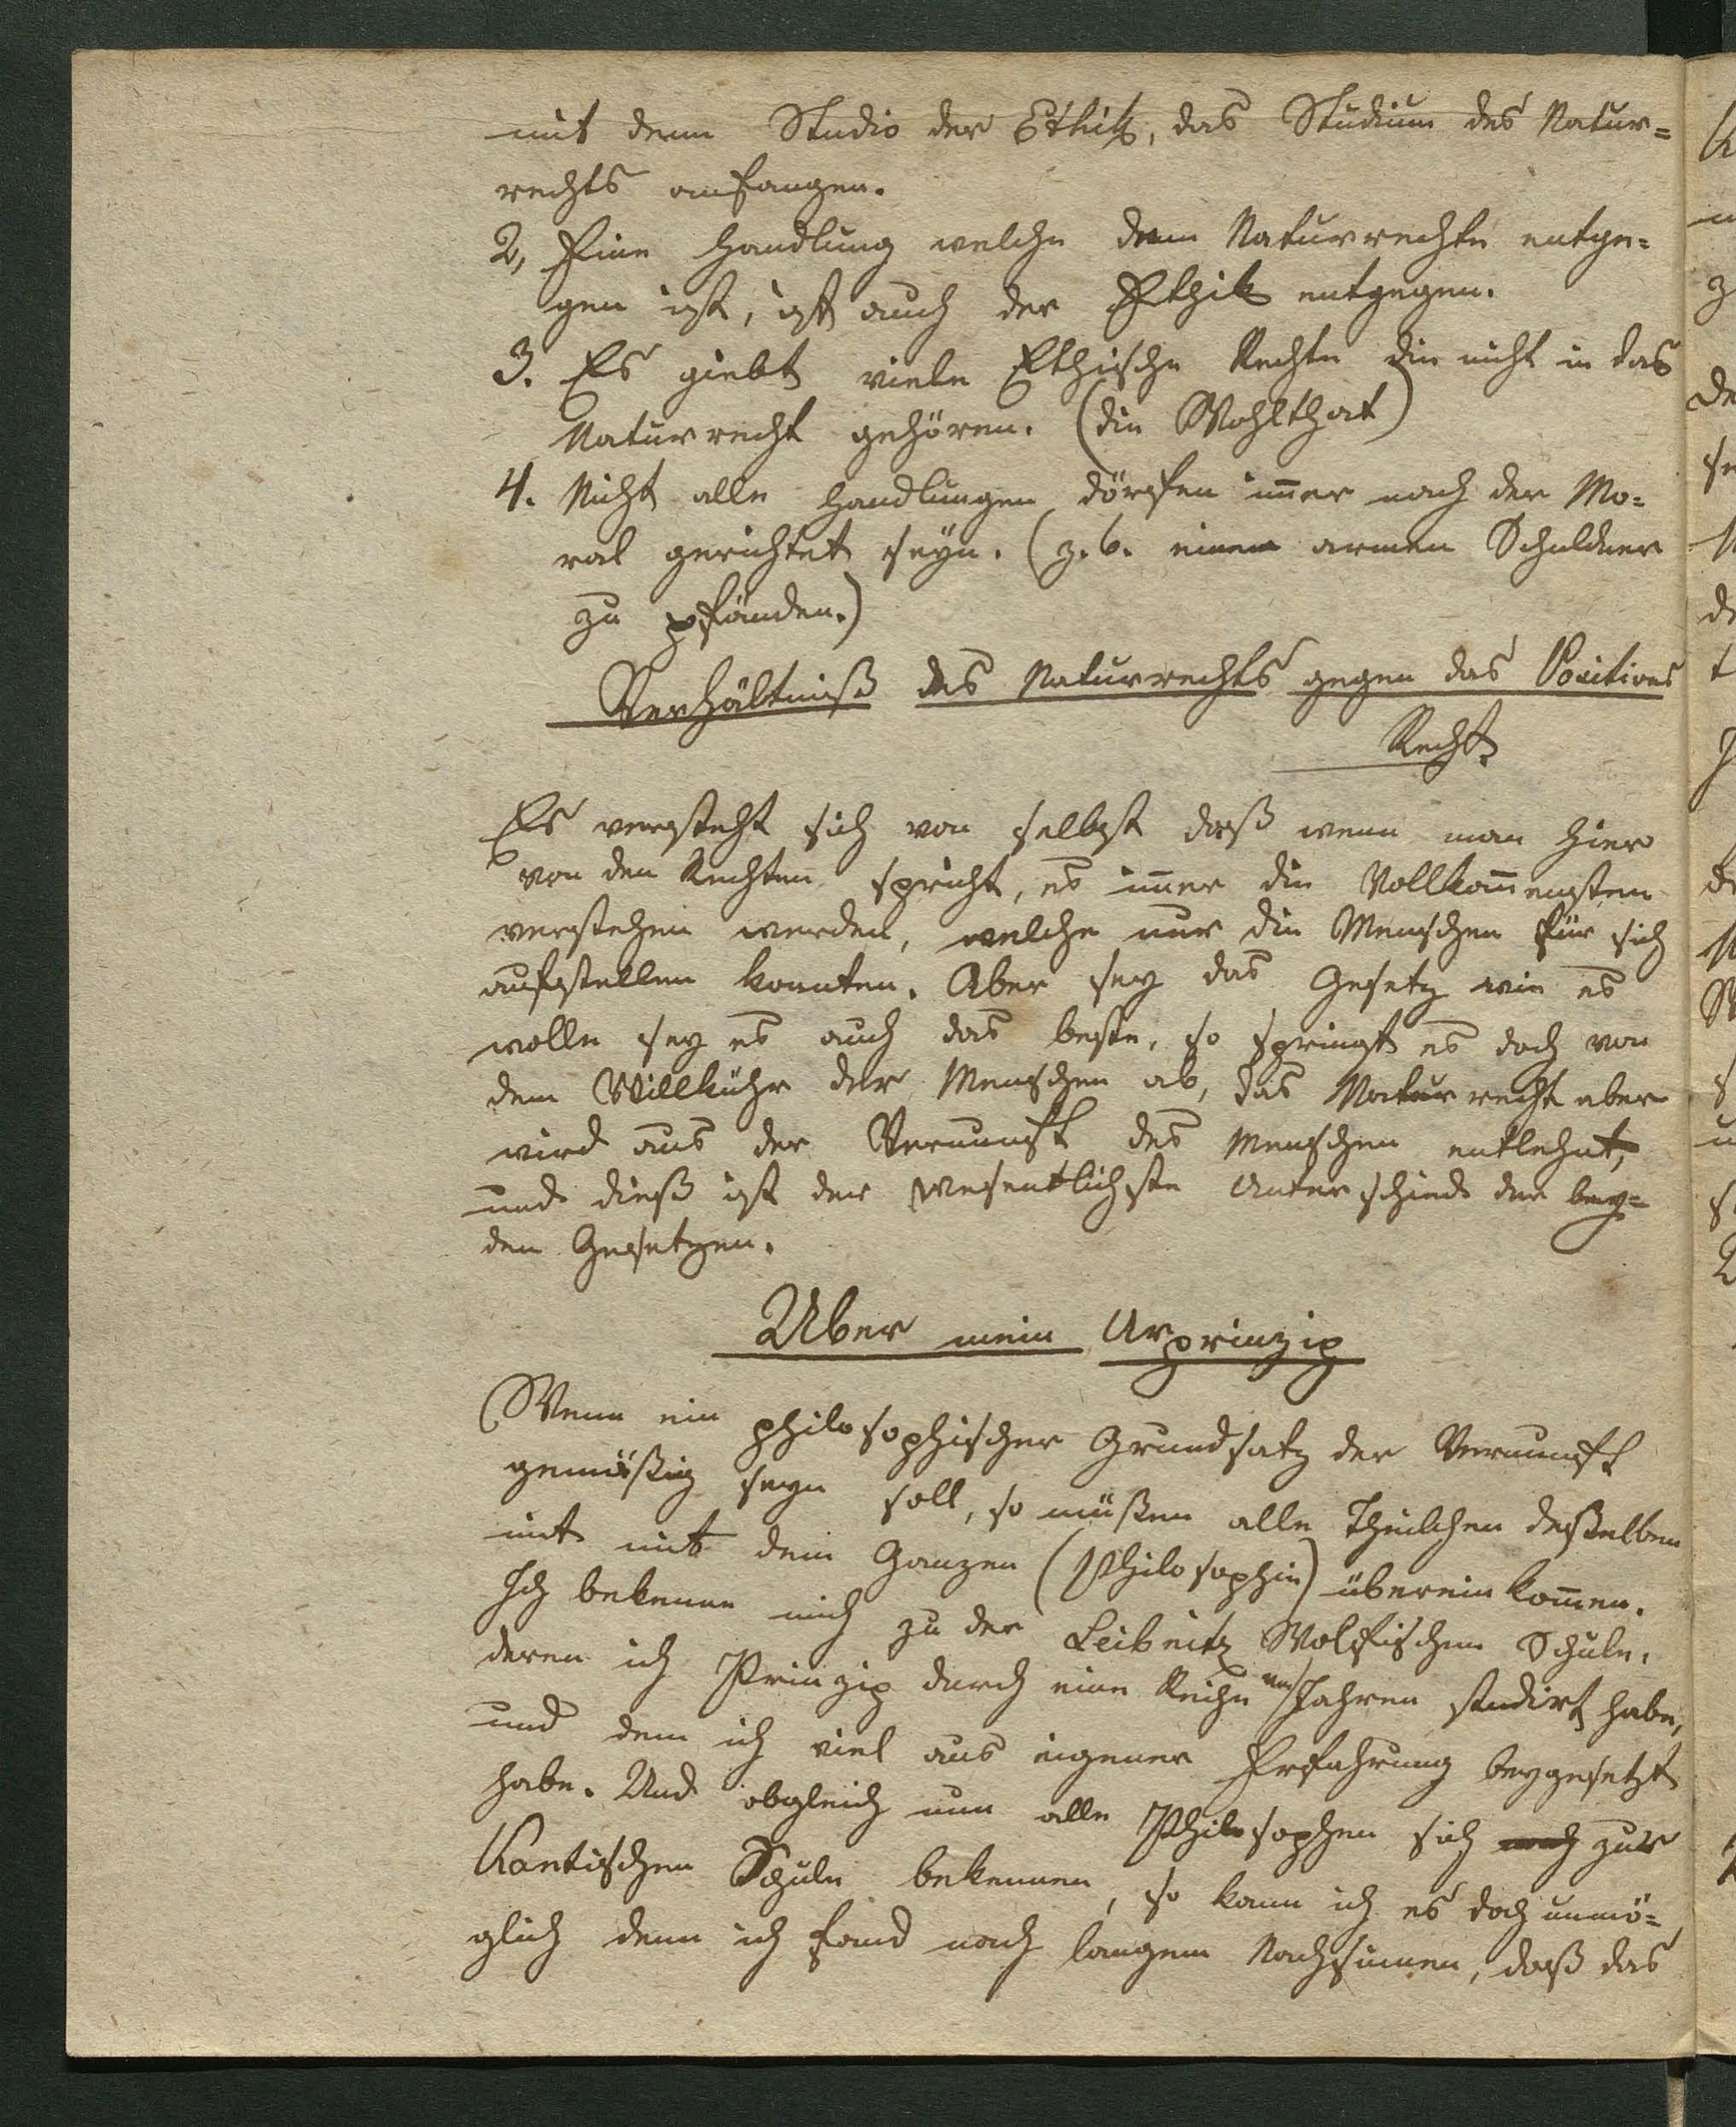 mit dem Studio der Ethik, das Studium des Natur=
rechts anfangen.
2, Eine Handlung welche dem Naturrechte entge=
gen ist, ist auch der Ethik entgegen.
3. Es giebt viele Ethische Rechte die nicht in das
Naturrecht gehören. (die Wohlthat)
4. Nicht alle Handlungen dörfen im̅er nach der Mo=
ral gerichtet seyn. (z. b. einen armen Schuldner
zu pfänden.)
Verhältniß des Naturrechts gegen das Positives
Recht.
Es versteht sich von selbst daß wenn man hier
von den Rechten spricht, es im̅er die Vollkom̅ensten
verstehen werden, welche nur die Menschen für sich
aufstellen konnten. Aber sey das Gesetz wie es
wolle sey es auch das beste, so springt es doch von
dem Willkühr der Menschen ab, das Naturrecht aber
wird aus der Vernunft des Menschen entlehnt,
und dieß ist der wesentlichste Unterschied der bey=
den Gesetzen.
Uber mein Urprinzip
Wenn ein philosophischer Grundsatz der Vernunft
gemäßig seyn soll, so müßen alle Theilchen deßelben
mit mit dem Ganzen (Philosophie) überein kom̅en.
Ich bekenne mich zu der Leibnitz Wolfischen Schule,
deren ich Prinzip durch eine Reihe von Jahren studirt habe,
und dem ich viel aus eigener Erfahrung beygesetzt
habe. Und obgleich nun alle Philosophen sich zur
Kantischen Schule bekennen, so kann ich es doch unmö=
glich denn ich fand nach langem Nachsinnen, daß das